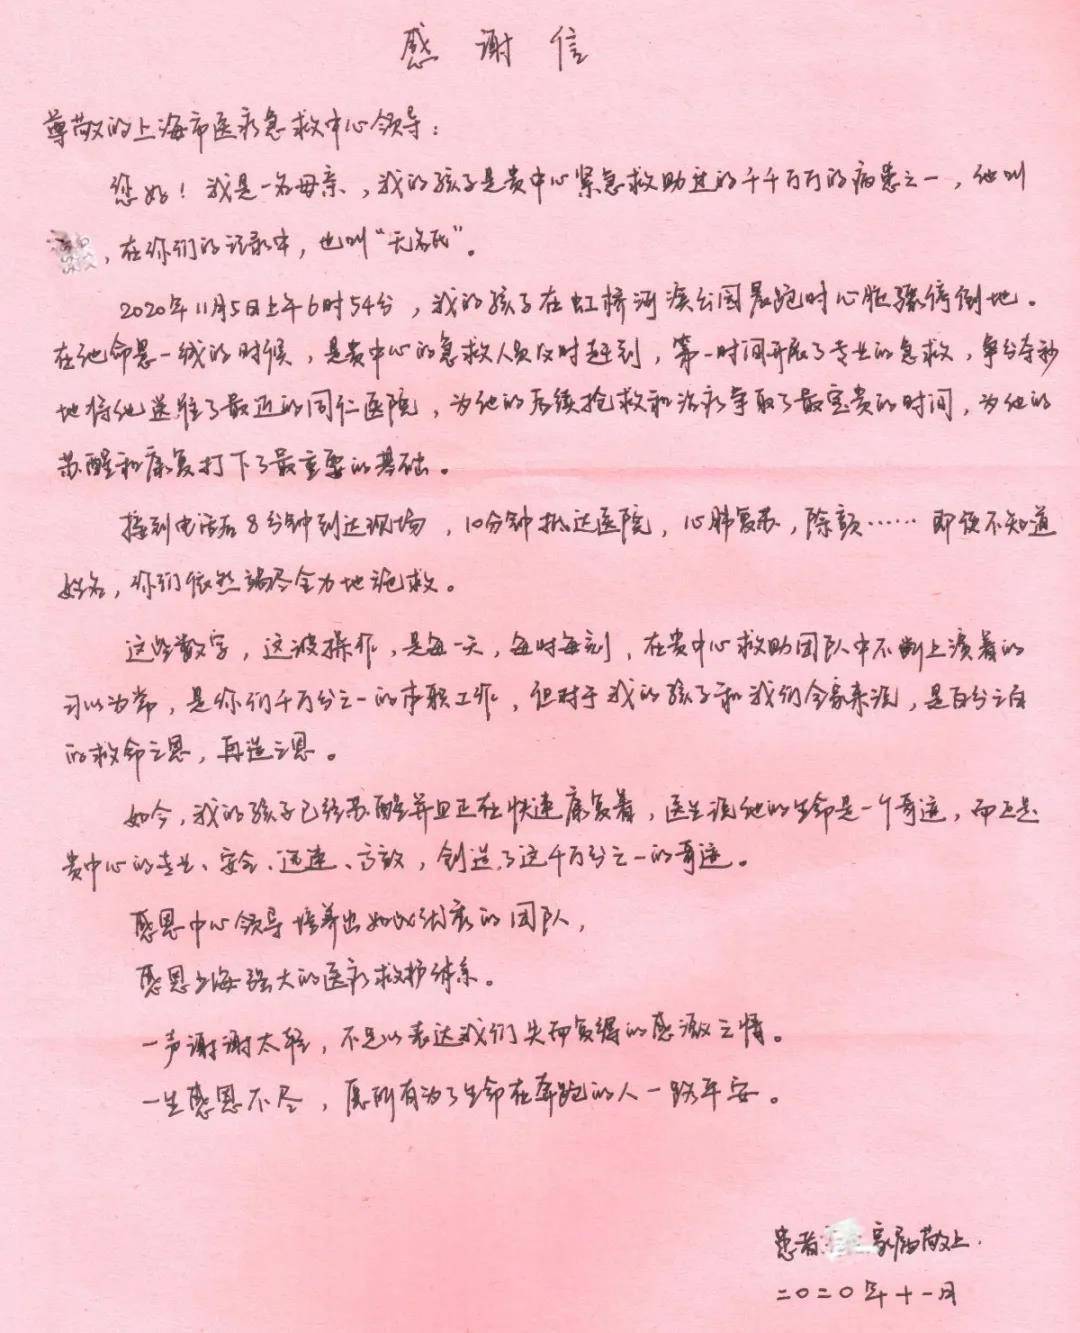 感谢信
尊敬的上海市医疗急救中心领导：
您好！我是一名母亲，我的孩子是贵中心紧急救助过的千千万万的病患之一，他叫
，在你们的记录中，也叫“无名氏”。
2020年11月5日上午6时54分，我的孩子在虹桥河滨公园晨跑时心脏骤停倒地。
在他命悬一线的时候，是贵中心的急救人员及时赶到，第一时间开展了专业的急救，争分夺秒
地将他送往了最近的同仁医院，为他的后续抢救和治疗争取了最宝贵的时间，为他的
苏醒和康复打下了最重要的基础。
接到电话后8分钟到达现场，10分钟抵达医院，心肺复苏，除颤……即使不知道
姓名，你们依然竭尽全力地施救。
这些数字，这波操作，是每一天，每时每刻，在贵中心救助团队中不断上演着的
习以为常，是你们千万分之一的本职工作，但对于我的孩子和我们全家来说，是百分之百
的救命之恩，再造之恩。
如今，我的孩子已经苏醒并且正在快速康复着，医生说他的生命是一个奇迹，而正是
贵中心的专业、安全、迅速、高效，创造了这千万分之一的奇迹。
感恩中心领导培养出如此优秀的团队，
感恩上海强大的医疗救护体系。
一声谢谢太轻，不足以表达我们失而复得的感激之情。
一生感恩不尽，愿所有为了生命在奔跑的人一路平安。
患者 家属敬上.
二〇二〇年十一月